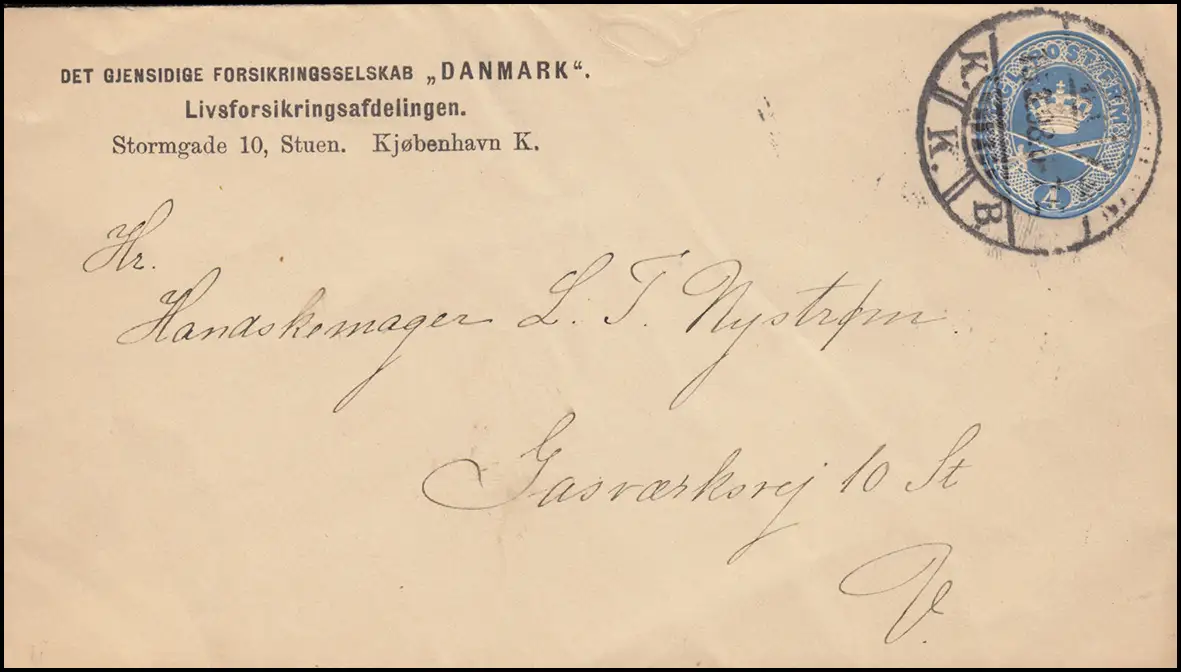 DET GJENSIDIGE FORSIKRINGSSELSKAB „DANMARK“.
Livsforsikringsafdelingen.
Stormgade 10, Stuen. Kjøbenhavn K.
K. K. B
4
Hr.
Handskemager L. T. Nystrøm
Gasværksvej 10 St
V.